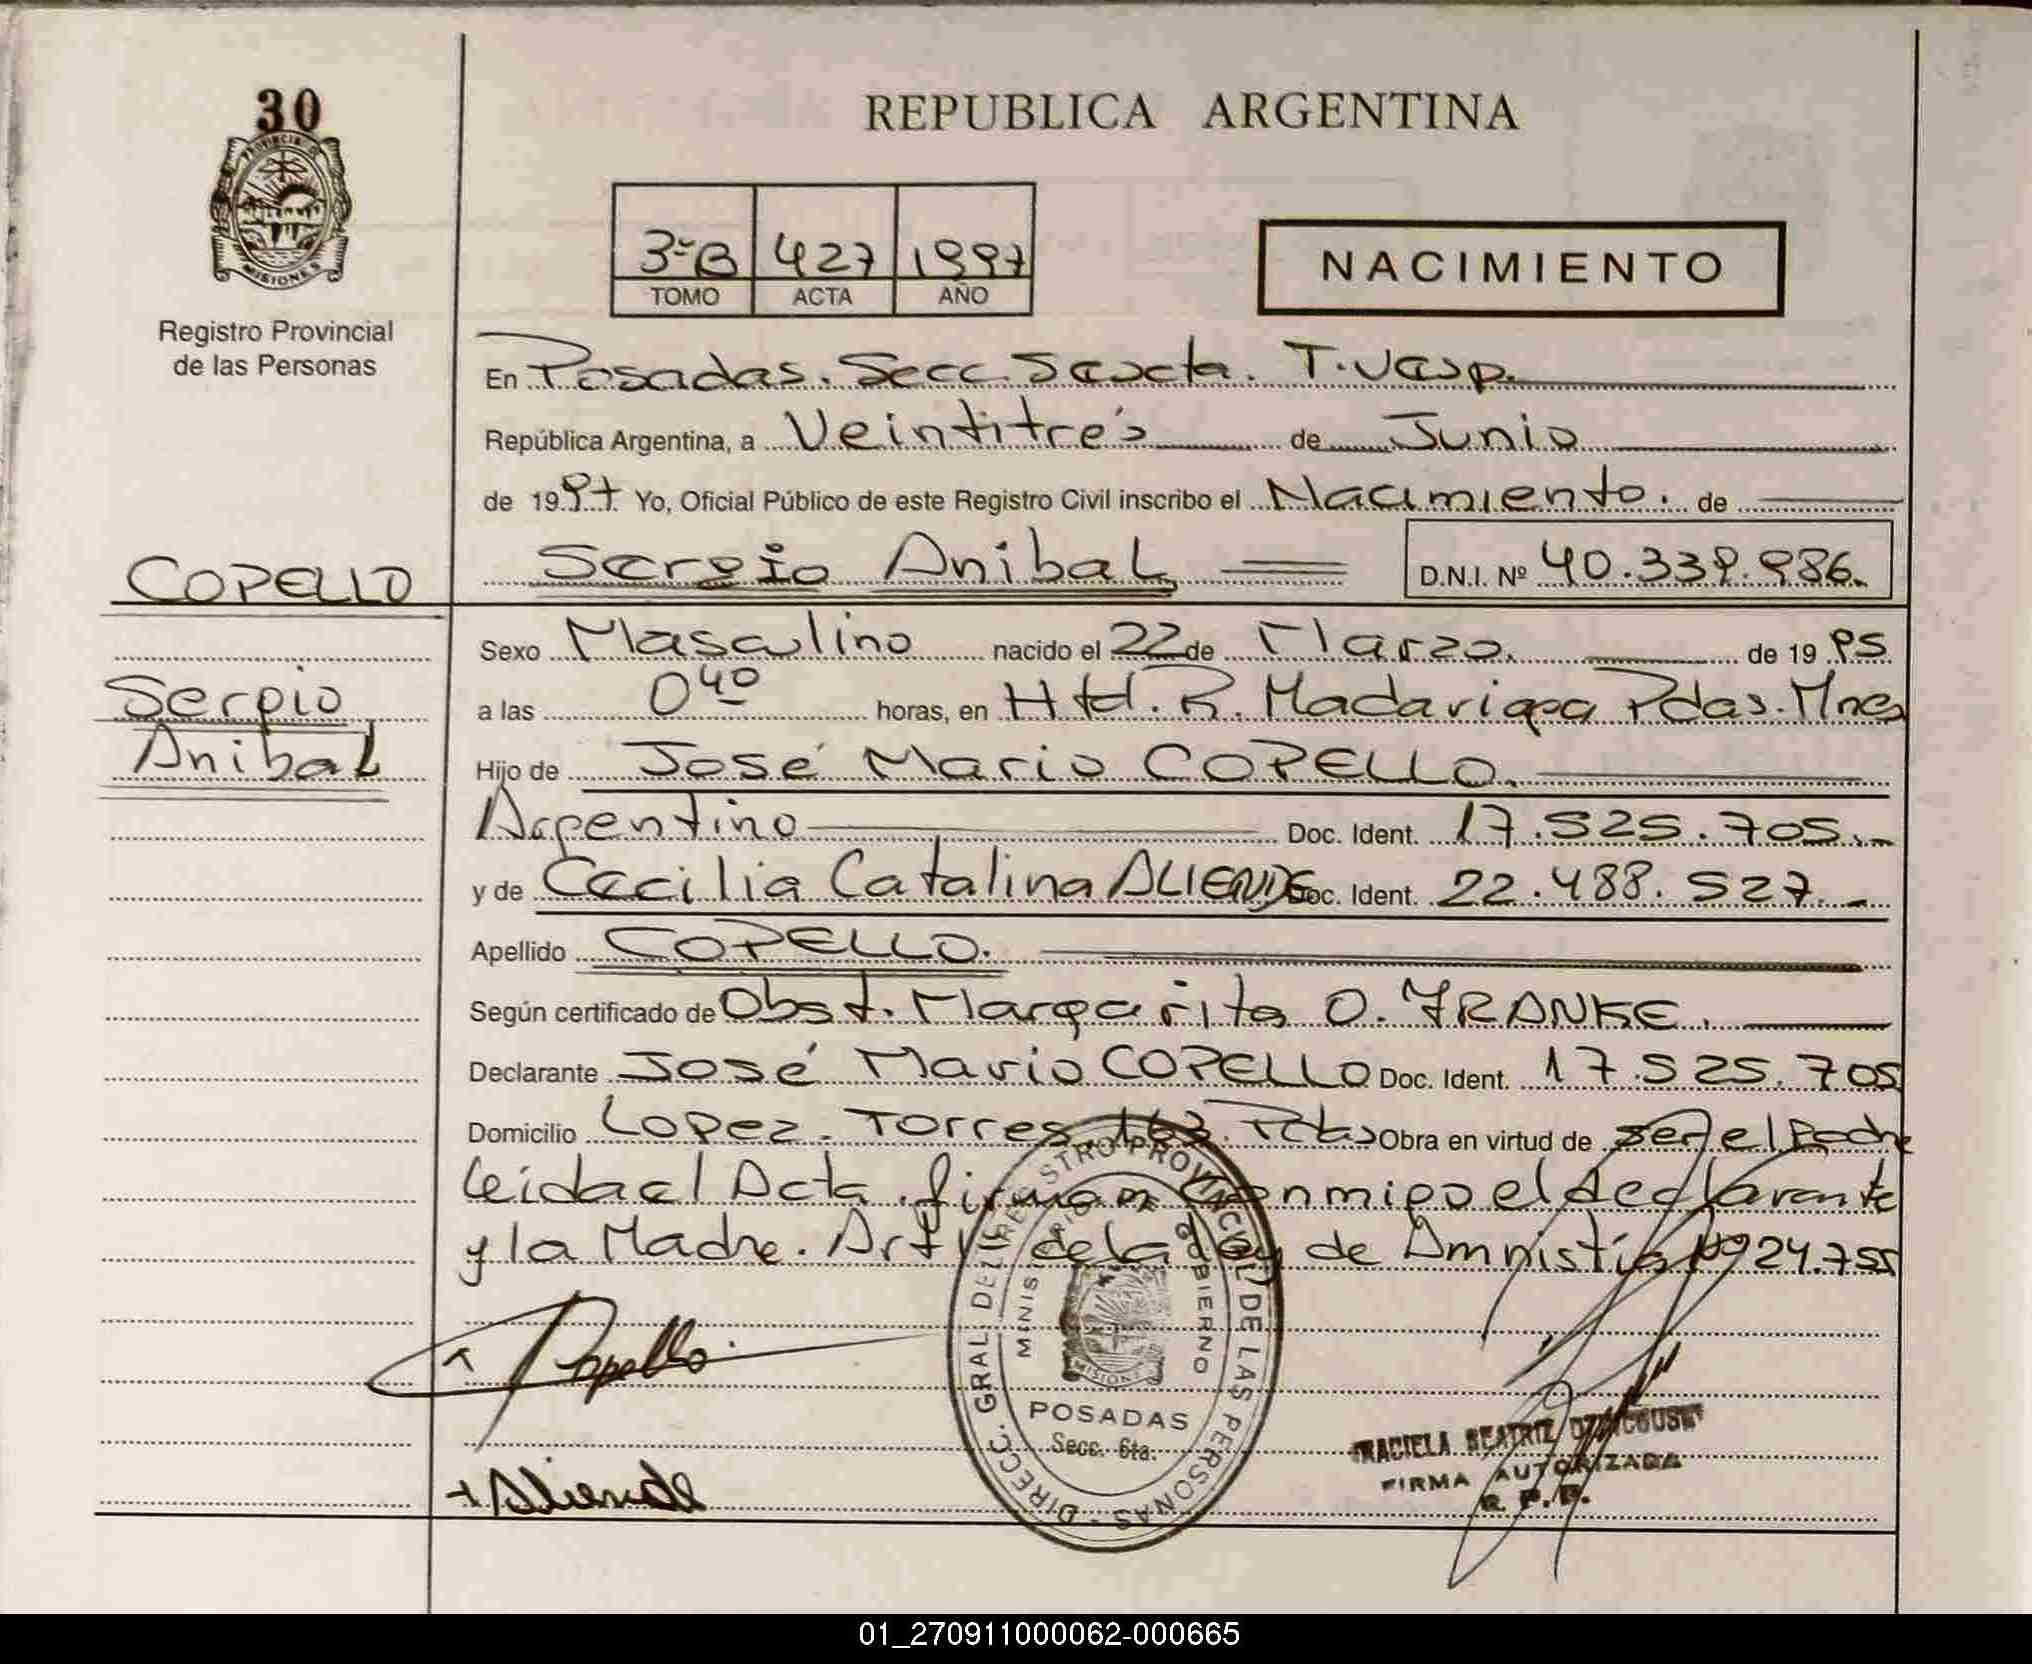 30
PROVINCIA DE
MISIONES
Registro Provincial
de las Personas
REPUBLICA ARGENTINA
3ºB 427 1997
TOMO ACTA AÑO
NACIMIENTO
En Posadas. Secc. Sexta. T. Vesp.
República Argentina, a Veintitrés de Junio
de 1997 Yo, Oficial Público de este Registro Civil inscribo el Nacimiento. de
Sergio Anibal D.N.I. Nº 40.339.986.
COPELLO
Sergio
Anibal
Sexo Masculino nacido el 22 de Marzo. de 1995
a las 0 40 horas, en Htal. R. Madariaga Pdas. Mnes
Hijo de José Mario COPELLO.
Argentino Doc. Ident. 17.525.705.-
y de Cecilia Catalina ALIENDE Doc. Ident. 22.488.527.-
Apellido COPELLO.
Según certificado de Obst. Margarita O. FRANKE.
Declarante José Mario COPELLO Doc. Ident. 17.525.705
Domicilio Lopez. Torres. 163. Pdas Obra en virtud de ser el Padre
Leida el Acta. firman conmigo el declarante
y la Madre. Art de la Ley de Amnistía Nº 24.755
Copello
Aliende
DIRECC. GRAL. DEL REGISTRO PROVINCIAL DE LAS PERSONAS
MINISTERIO DE GOBIERNO
MISIONES
POSADAS
Secc. 6ta.
GRACIELA BEATRIZ
FIRMA AUTORIZADA
R. P. P.
01_270911000062-000665